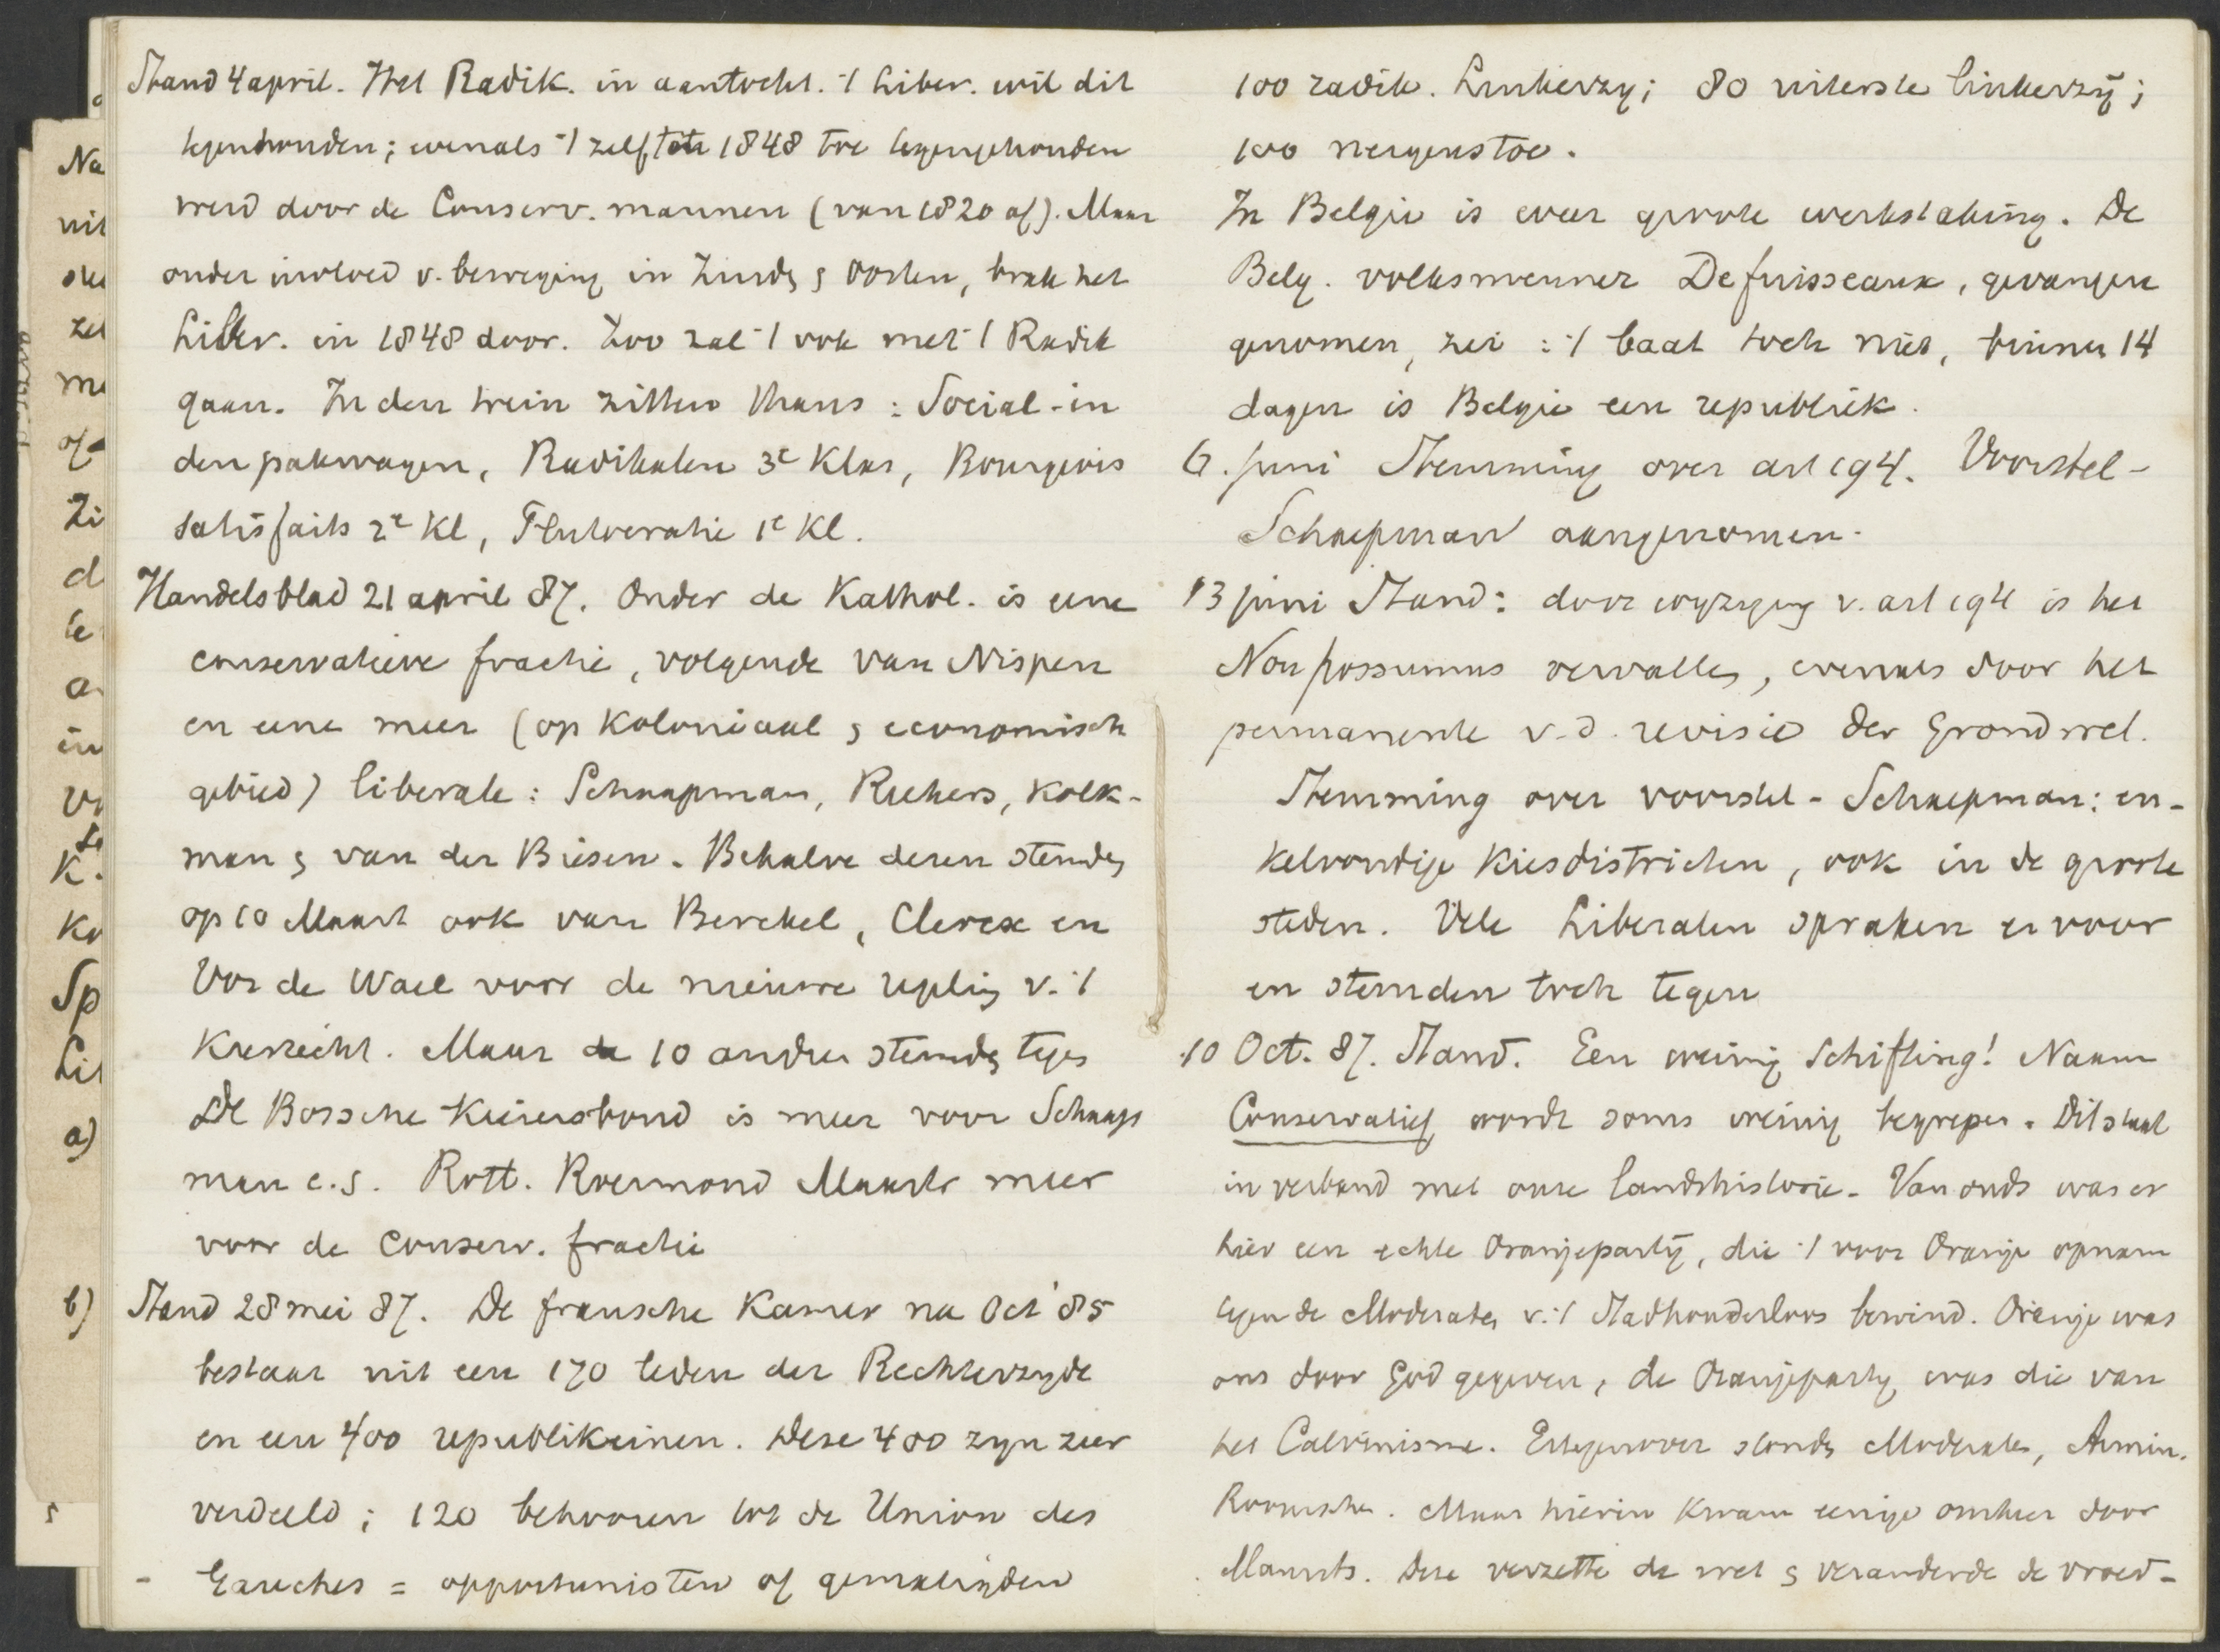 Stand 4 april. Het Radik. in aantocht. 't Liber. wil dit
tegenhouden; evenals 't zelf tot 1848 toe tegengehouden
werd door de Conserv. mannen (van 1820 af). Maar
onder invloed v. beweging in Zuidz & Oosten, brak het
Liber. in 1848 door. Zoo zal 't ook met 't Radik
gaan. In den trein zitten thans: Social- in
den pakwagen, Radikalen 3e Klas, Bourgeois
satisfaits 2e Kl, Plutocratie 1e Kl.
Handelsblad 21 april 87. Onder de Kathol. is eene
conservatieve fractie, volgende van Nispen
en eene meer (op koloniaal & economisch
gebied) liberale: Schaapman, Ruhers, Kolk-
man & van der Biesen. Behalve dezen stemdn
op 10 Maart ook van Berckel, Clercx en
Vos de Wael voor de nieuwe regeling v. 't
Kiesrecht. Maar de 10 andren stemdn tegen
De Bossche Kiezersbond is meer voor Schaap
man c.s. Rott. Roermond Maastr meer
voor de conserv. fractie
Stand 28 mei 87. De fransche Kamer na Oct '85
bestaat uit een 170 leden der Rechterzyde
en een 400 republikeinen. Deze 400 zyn zeer
verdeeld; 120 behooren tot de Union des
Gauches = opportunisten of gematigden
100 radik. Linkerzy; 80 uiterste linkerzij;
100 nergens toe.
In Belgie is weer groote werkstaking. De
Belg. volksmenner Defuisseaux, gevangen
genomen, zei: 't baat toch niet, binnen 14
dagen is Belgie een republiek.
6. juni Stemming over art 194. Voorstel-
Schaepman aangenomen.
13 juni Stand: door wyziging v. art 194 is het
Non possumus vervallen, evenals door het
permanente v. d. revisie der Grondwet.
Stemming over voorstel-Schaepman: en-
kelvoudige Kiesdistricten, ook in de groote
steden. Vele Liberalen spraken er voor
en stemden toch tegen
10 Oct. 87. Stand. Een weinig Schifting! Naam
Conservatief wordt soms weinig begrepen. Dit staat
in verband met onze landshistorie. Van ouds was er
hier een echte Oranjepartij, die 't voor Oranje opnam
tegen de Moderaten v. 't Stadhouderloos bewind. Oranje was
ons door God gegeven, de Oranjeparty was die van
het Calvinisme. Ertegenover stondn Moderaten, Armin.
Roomschen. Maar hierin kwam eenige omkeer door
Maurits. Deze verzette de wet & veranderde de vroed-